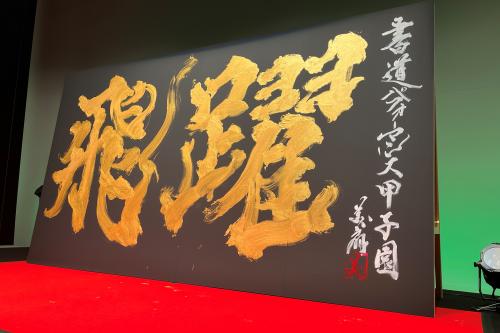 飛躍
書道パフォーマンス甲子園